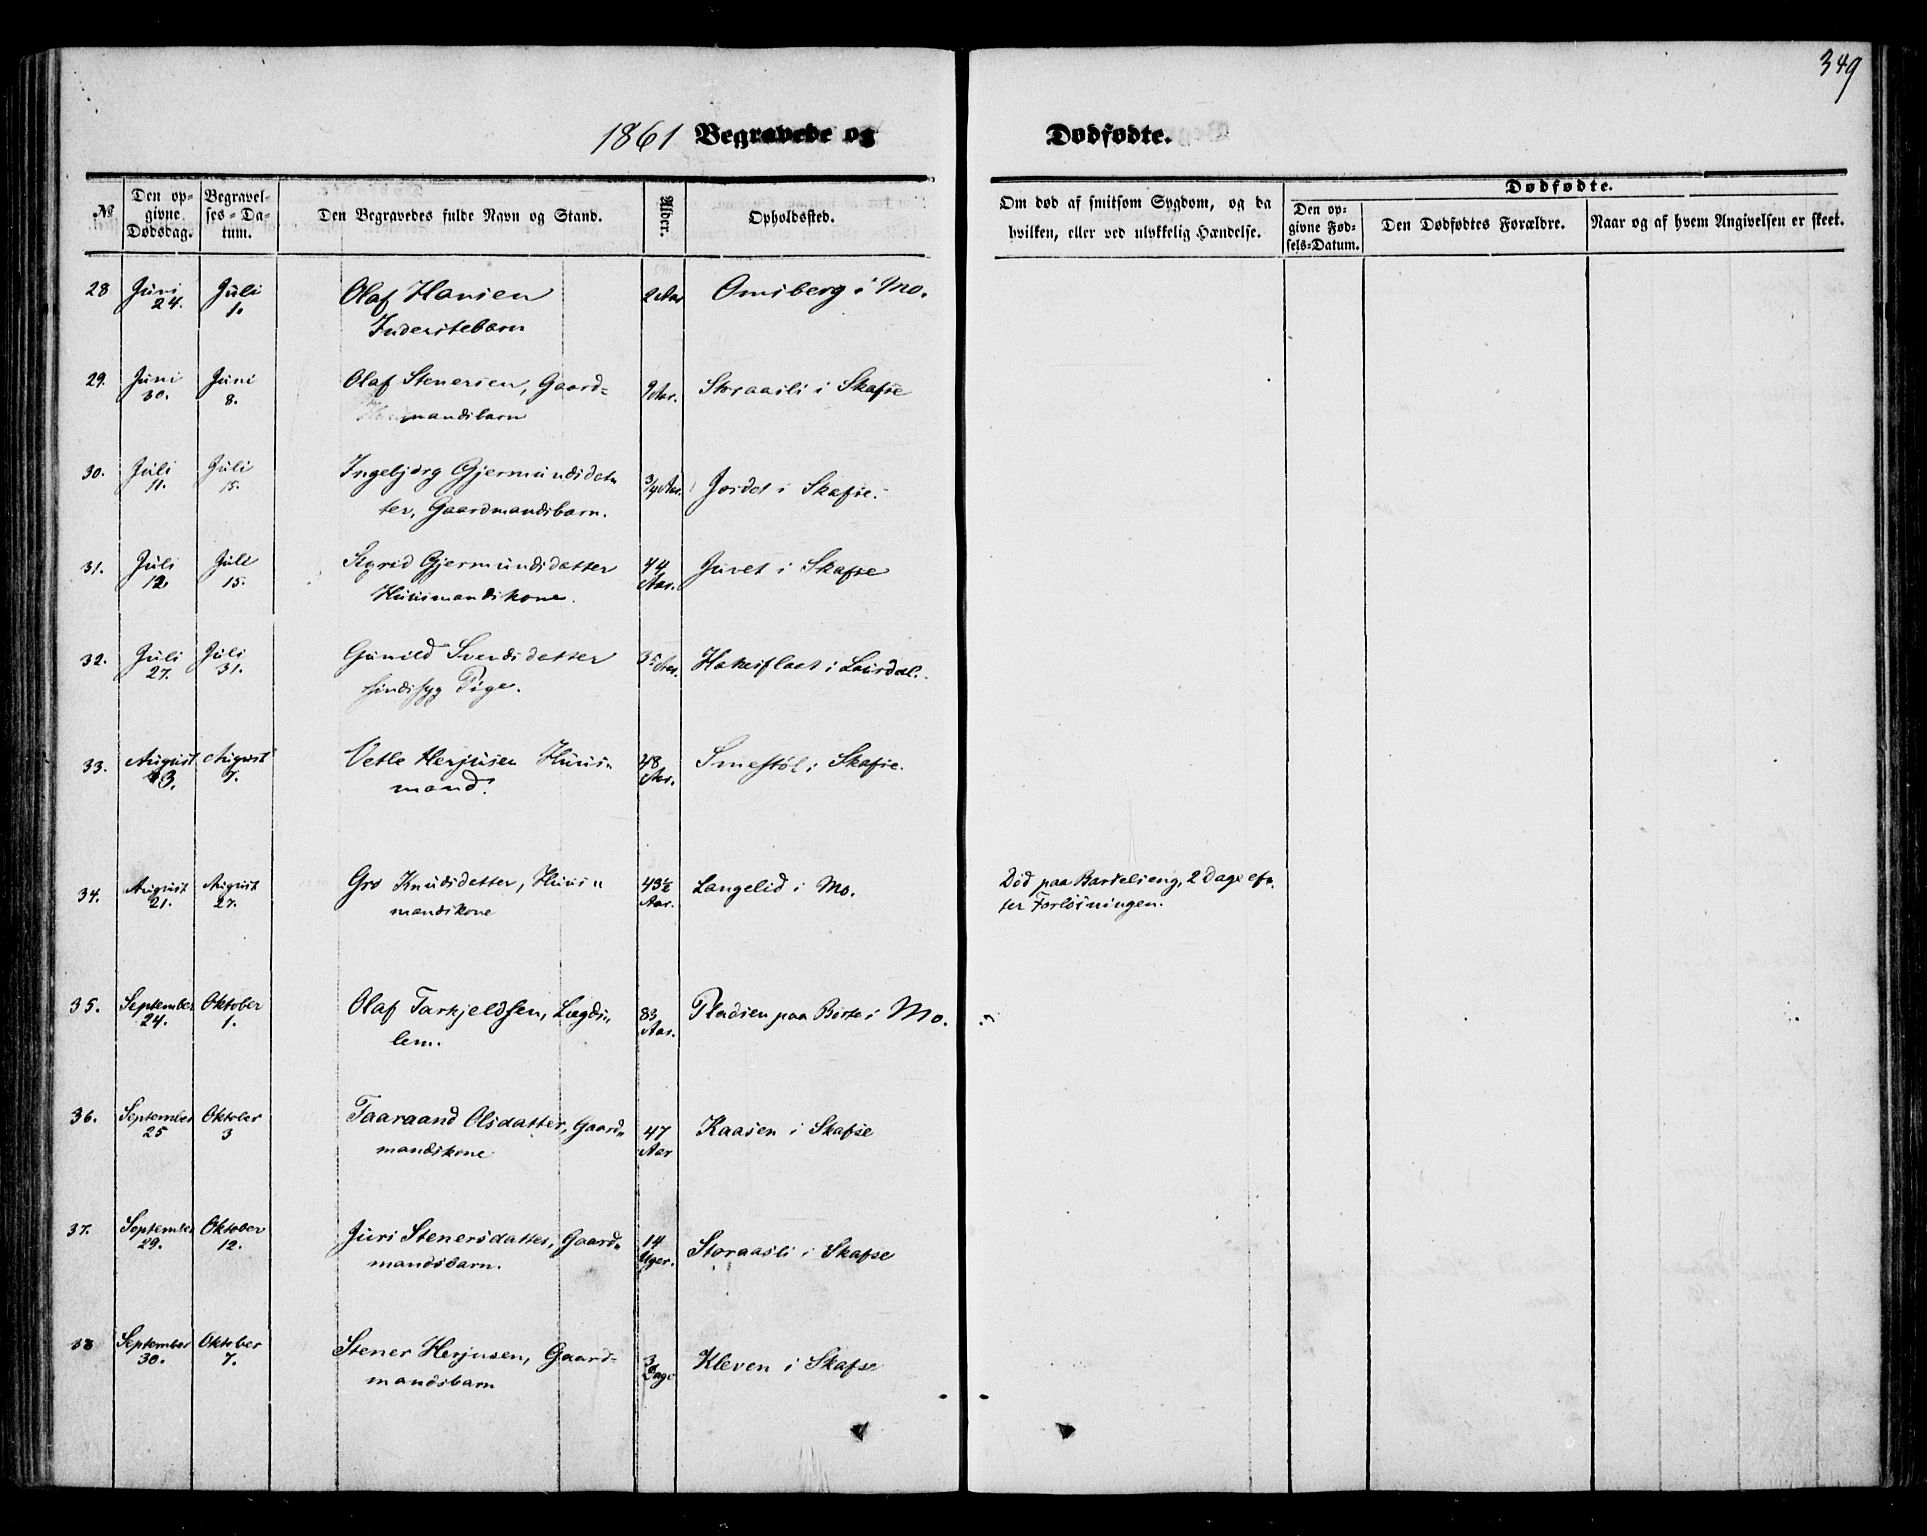 349
1861 Begravede og Dødfødte.
№
Den opgivne Dødsdag.
Begravelses-Datum.
Den Begravedes fulde Navn og Stand.
Alder.
Opholdssted.
Om død af smitsom Sygdom, og da hvilken, eller ved ulykkelig Hændelse.
Dødfødte.
Den opgivne Fødsels-Datum.
Den Dødfødtes Forældre.
Naar og af hvem Angivelsen er skeet.
28 Juni 24. Juli 1. Olaf Hansen 2 Aar Omsberg i Mo.
Inderstebarn
29. Juni 30. Juni 8. Olaf Stenersen, Gaard= 9 Aar. Storaasli i Skafse
mandsbarn
30. Juli 11. Juli 15. Ingebjørg Gjermundsdat= 3/4 Aar. Jordet i Skafse.
ter, Gaardmandsbarn.
31. Juli 12. Juli 15. Sigrid Gjermundsdatter 44 Aar. Juvet i Skafse
Huusmandskone.
32. Juli 27. Juli 31. Gunild Svendsdatter 35 Aar. i Laurdal.
sindssyg Pige.
33. August 3. August 7. Vetle Herjusen Huus= 48 Aar. Smestøl i Skafse.
mand.
34. August 21. August 27. Gro Knudsdatter, Huus= 43½ Aar. Langelid i Mo. Død paa Barselseng, 2 Dage ef=
mandskone ter Forløsningen.
35. September 24. Oktober 1. Olaf Tarkjeldsen, Lægds= 83 Aar. Pladsen paa Børte i Mo.
lem.
36. September 25 Oktober 3 Taaraand Olsdatter, Gaard= 47 Aar Kaasen i Skafse
mandskone
37. September 29. Oktober 12. Juri Stenersdatter, Gaard= 14 Uger. Storaasli i Skafse
mandsbarn.
38 September 30. Oktober 7. Stener Herjusen, Gaard= 3 Dage Kleven i Skafse
mandsbarn